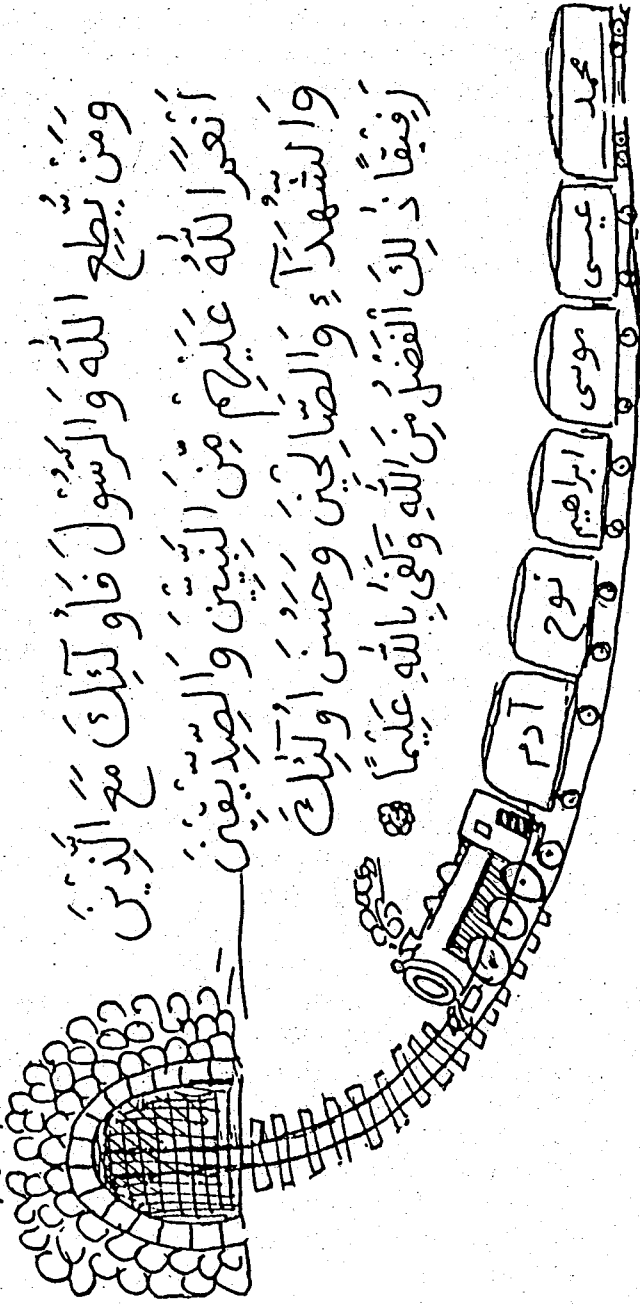 وَمَنْ يُطِعِ اللّٰهَ وَالرَّسُولَ فَأُولَٰٓئِكَ مَعَ الَّذِينَ
أَنْعَمَ اللّٰهُ عَلَيْهِمْ مِنَ النَّبِيّٖنَ وَالصِّدِّيقِينَ
وَالشُّهَدَآءِ وَالصَّالِحِينَ وَحَسُنَ أُولَٰٓئِكَ
رَفِيقًا ذٰلِكَ الْفَضْلُ مِنَ اللّٰهِ وَكَفٰى بِاللّٰهِ عَلِيمًا
آدم
نوح
ابراهيم
موسى
عيسى
محمد